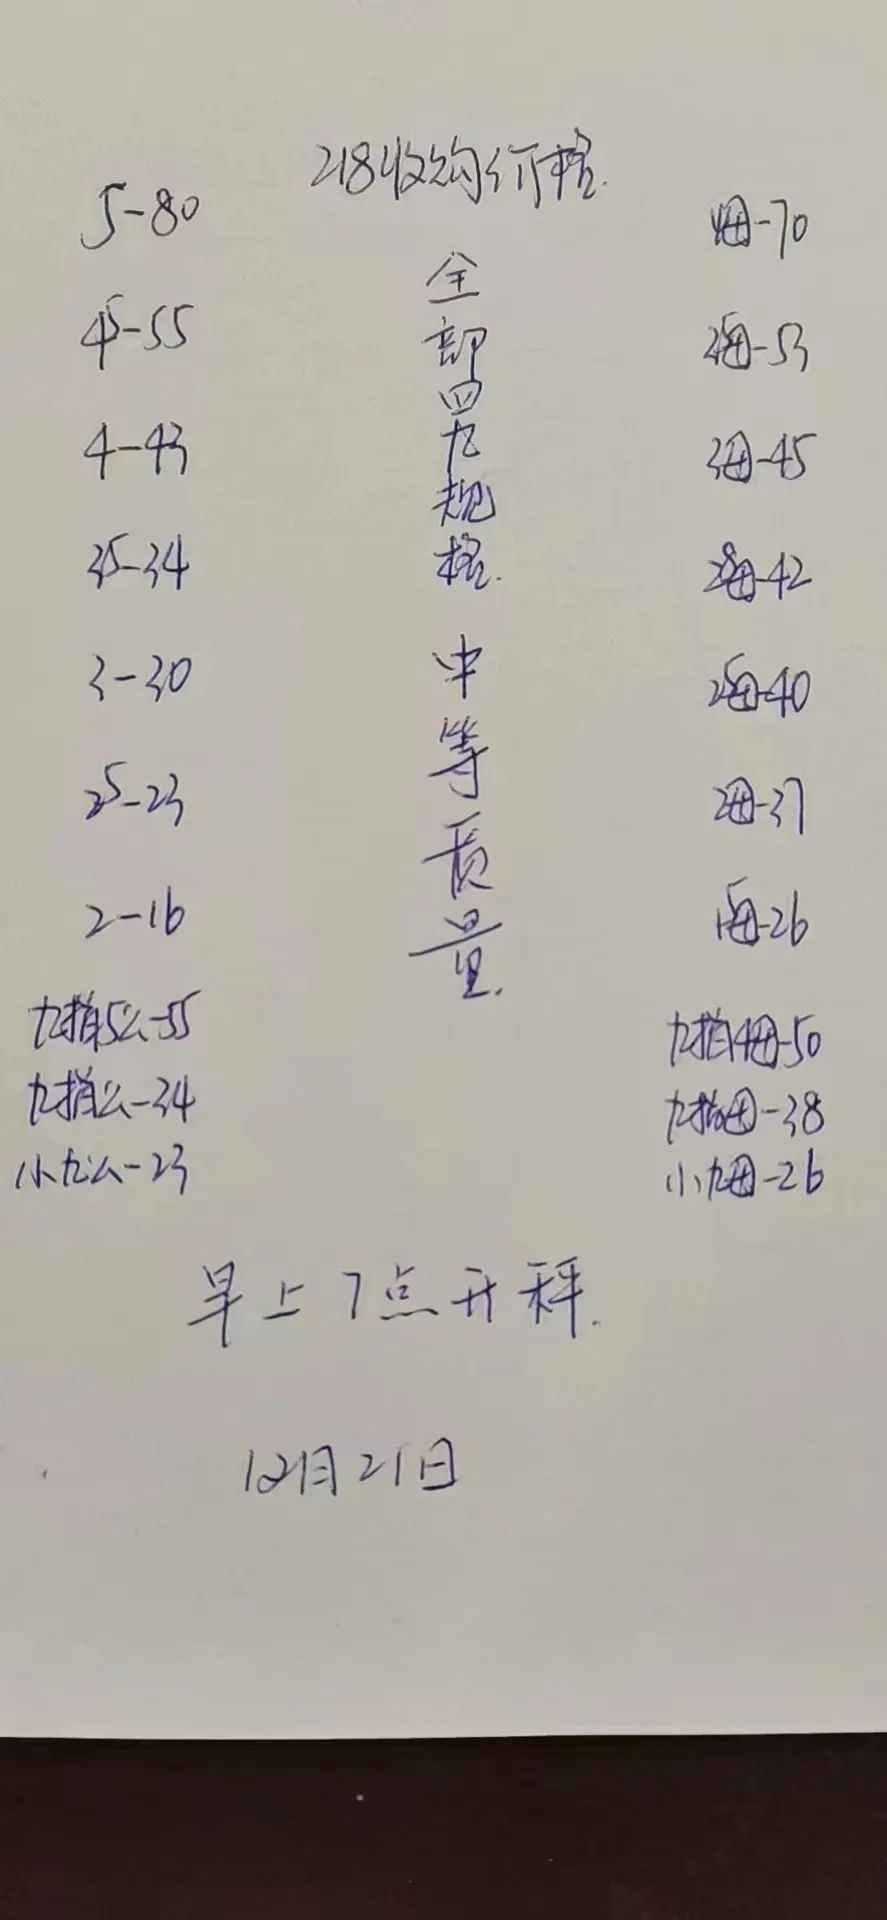 218收购价格.
5-80
45-55
4-43
35-34
3-30
25-23
2-16
九指5公-55
九指公-34
小九公-23
全部四九规格.
中等质量.
4母-70
35母-53
3母-45
28母-42
25母-40
2母-37
15母-26
九指4母-50
九指母-38
小九母-26
早上7点开秤.
12月21日